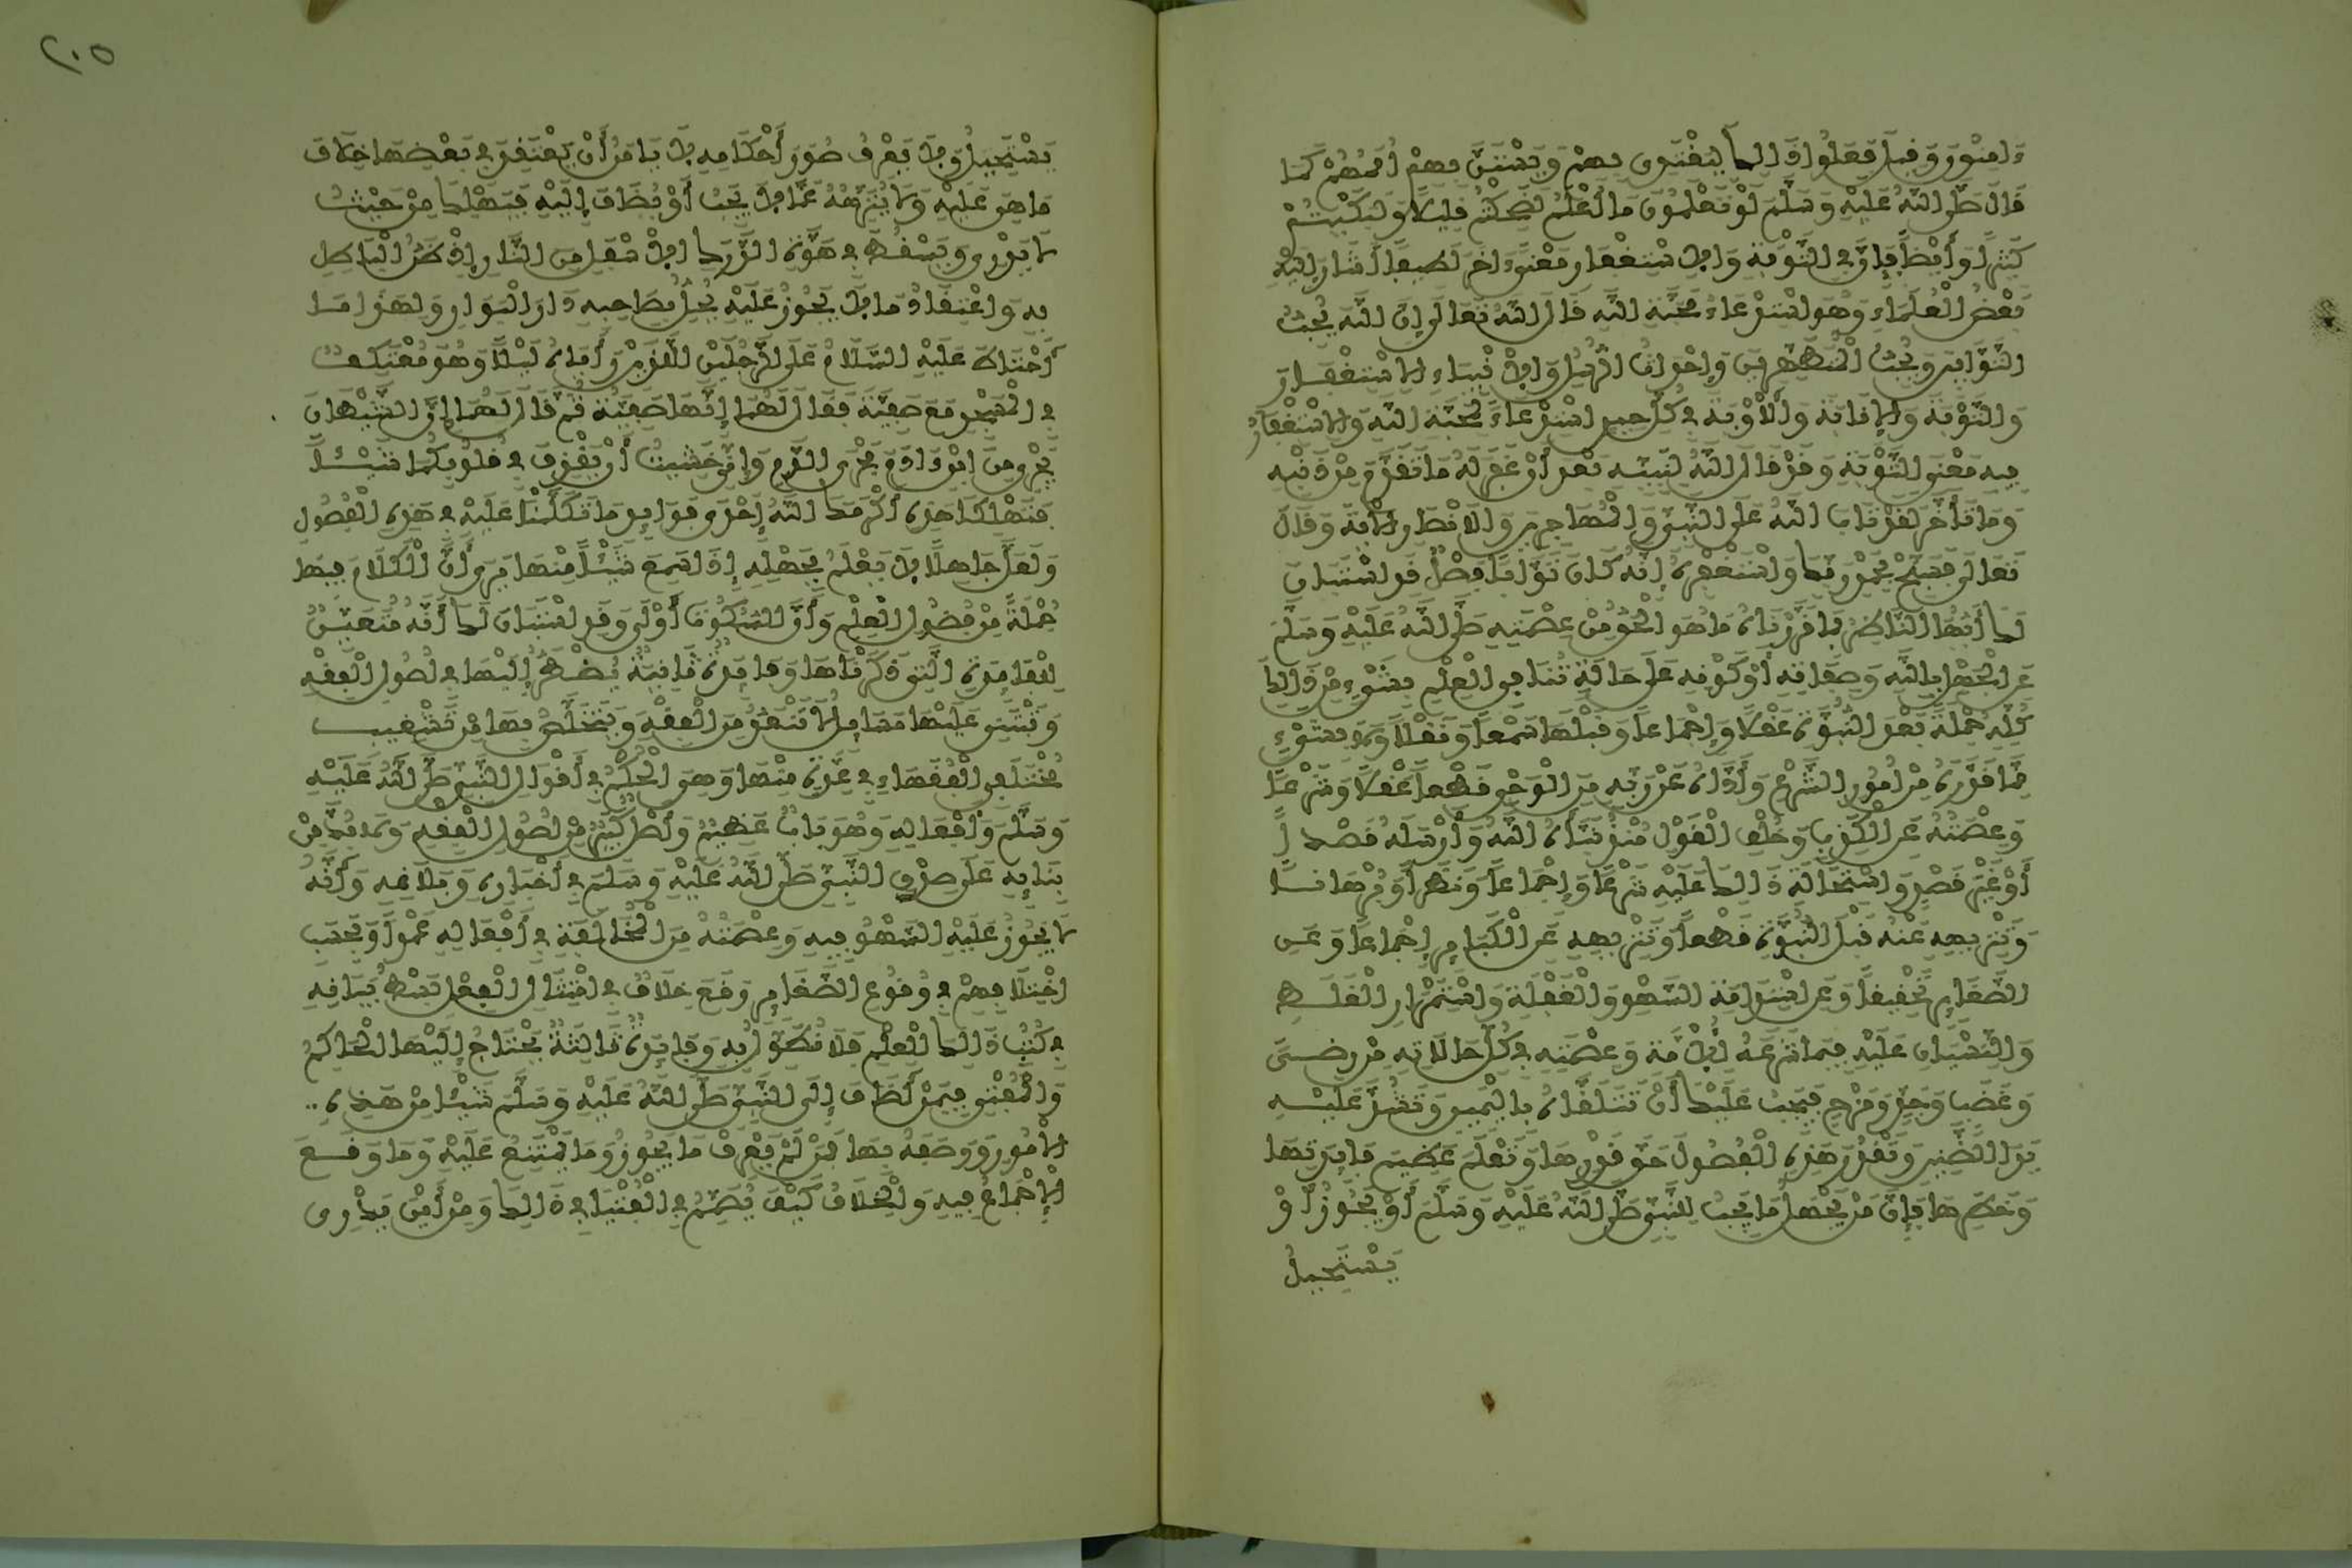 ءامنون وقيل فعلوا ذالك ليقتدى بهم ويستن بهم أممهم كما
قال صلى الله عليه وسلم لو تعلمون ما أعلم لضحكتم قليلا ولبكيتم
كثيرا وأيضا فإن في التوبة والاستغفار معنى ءاخر لطيفا أشار إليه
بعض العلماء وهو استدعاء محبة الله قال الله تعالى إن الله يحب
التوابين ويحب المتطهرين وإحداث الرسل والانبياء الاستغفار
والتوبة والإنابة والأوبة في كل حين استدعاء لمحبة الله والاستغفار
فيه معنى التوبة وقد قال الله لنبيه بعد أن غفر له ما تقدم من ذنبه
وما تأخر لقد تاب الله على النبي والمهاجرين والانصار الآية وقال
تعالى فسبح بحمد ربك واستغفره إنه كان توابا فصل قد استبان
لك أيها الناظر بما قررناه ما هو الحق من عصمته صلى الله عليه وسلم
عن الجهل بالله وصفاته أو كونه على حالة تنافي العلم بشيء من ذالك
كله جملة بعد النبوة عقلا وإجماعا وقبلها سمعا ونقلا ولا بشيء
مما قررته من أمور الشرع وأداه عن ربه من الوحي قطعا عقلا وشرعا
وعصمته عن الكذب وخلف القول منذ نبأه الله وأرسله قصدا
أو غير قصد واستحالة ذالك عليه شرعا وإجماعا ونظرا وبرهانا
وتنزيهه عنه قبل النبوة قطعا وتنزيهه عن الكبائر إجماعا وعن
الصغائر تحقيقا وعن استدامة السهو والغفلة واستمرار الغلط
والنسيان عليه فيما شرعه للأمة وعصمته في كل حالاته من رضى
وغضب وجد ومزح فيجب عليك أن تتلقاه باليمين وتشد عليه
يد الضنين وتقدر هذه الفصول حق قدرها وتعلم عظيم فائدتها
وخطرها فإن من يجهل ما يجب للنبي صلى الله عليه وسلم أو يجوز أو
يستحيل
٢٠٥
يستحيل ولا يعرف صور أحكامه لا يامن أن يعتقد في بعضها خلاف
ما هو عليه ولا ينزهه عما لا يجب أن يضاف إليه فيهلك من حيث
لا يدري ويسقط في هوة الدرك الاسفل من النار إذ ظن الباطل
به واعتقاد ما لا يجوز عليه يحل بصاحبه دار البوار ولهذا ما
احتاط عليه السلام على الرجلين اللذين رأياه ليلا وهو معتكف
في المسجد مع صفية فقال لهما إنها صفية ثم قال لهما إن الشيطان
يجري من ابن ءادم مجرى الدم وإني خشيت أن يقذف في قلوبكما شيئا
فتهلكا هذه أكرمك الله إحدى فوائد ما تكلمنا عليه في هذه الفصول
ولعل جاهلا لا يعلم بجهله إذا سمع شيئا منها يرى أن الكلام فيها
جملة من فضول العلم وأن السكوت أولى وقد استبان لك أنه متعين
للفائدة التي ذكرناها وفائدة ثانية يضطر إليها في أصول الفقه
وتبتنى عليها مسائل لا تنعد من الفقه ويتخلص بها من تشغيب
مختلفي الفقهاء في عدة منها وهو الحكم في أقوال النبي صلى الله عليه
وسلم وأفعاله وهو باب عظيم وأصل كبير من أصول الفقه ولا بد من
بنائه على صدق النبي صلى الله عليه وسلم في أخباره وبلاغه وأنه
لا يجوز عليه السهو فيه وعصمته من المخالفة في أفعاله عمدا وبحسب
اختلافهم في وقوع الصغائر وقع خلاف في امتثال الفعل بسط بيانه
في كتب ذالك العلم فلا نطول به وفائدة ثالثة يحتاج إليها الحاكم
والمفتي فيمن أضاف إلى النبي صلى الله عليه وسلم شيئا من هذه
الامور ووصفه بها فمن لم يعرف ما يجوز وما يمتنع عليه وما وقع
الإجماع فيه والخلاف كيف يصمم في الفتيا في ذالك ومن أين يدري